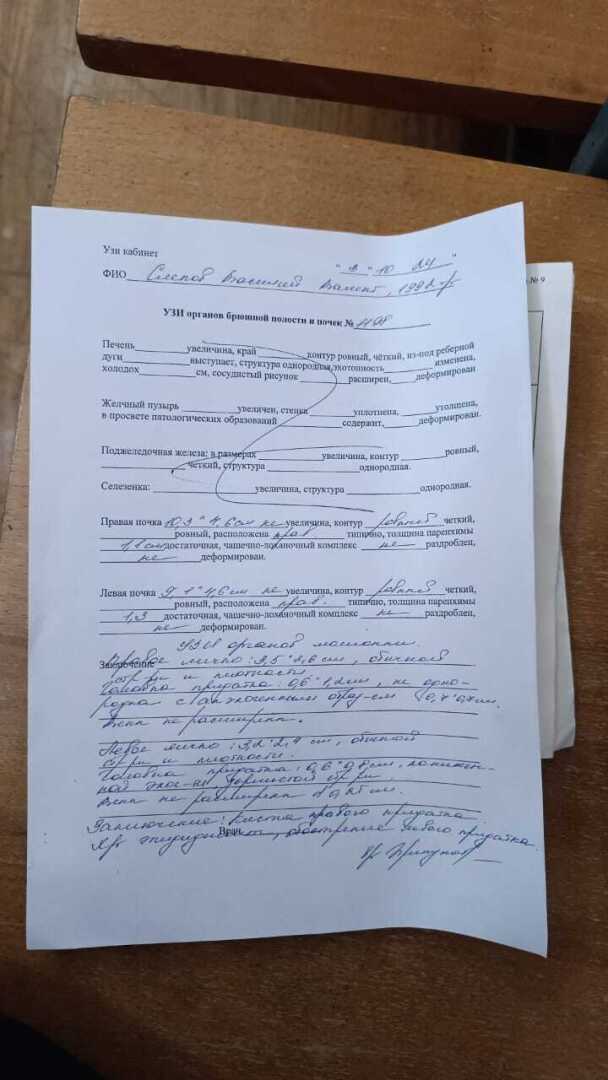 № 9
Узи кабинет
" 2 " 10 24 "
ФИО Слепов Василий Валент, 1992 г
УЗИ органов брюшной полости и почек №
Печень увеличина, край контур ровный, чёткий, из-под реберной
дуги выступает, структура однородная, эхогонность изменена,
холодох см, сосудистый рисунок расширен, деформирован
Желчный пузырь увеличен, стенка уплотнена, утолщена,
в просвете патологических образований содержит, деформирован.
Поджеледочная железа: в размерах увеличина, контур ровный,
четкий, структура однородная.
Селезенка: увеличина, структура однородная.
Правая почка 10,3 * 4,6 см не увеличина, контур ровный четкий,
ровный, расположена прав. типично, толщина паренхимы
1,1 см достаточная, чашечно-лоханочный комплекс не раздроблен,
не деформирован.
Левая почка 9,1 * 4,6 см не увеличина, контур ровный четкий,
ровный, расположена прав. типично, толщина паренхимы
1,3 достаточная, чашечно-лоханочный комплекс не раздроблен,
не деформирован.
УЗИ органов мошонки.
Заключение
Правое яичко: 3,5 * 2,6 см, обычной
стр-ры и плотности.
Головка придатка: 0,6 * 1,2 см, не одно-
родна с анэхогенным образ-ем 0,4 * 0,4 см.
Вены не расширены.
Левое яичко: 3,2 * 2,4 см, обычной
стр-ры и плотности.
Головка придатка: 0,6 * 0,8 см, понижен-
ной эхог-ти стр-ры.
Вены не расширены
Заключение: Киста правого придатка
Врач
Хр. эпидидимит, обострение левого придатка.